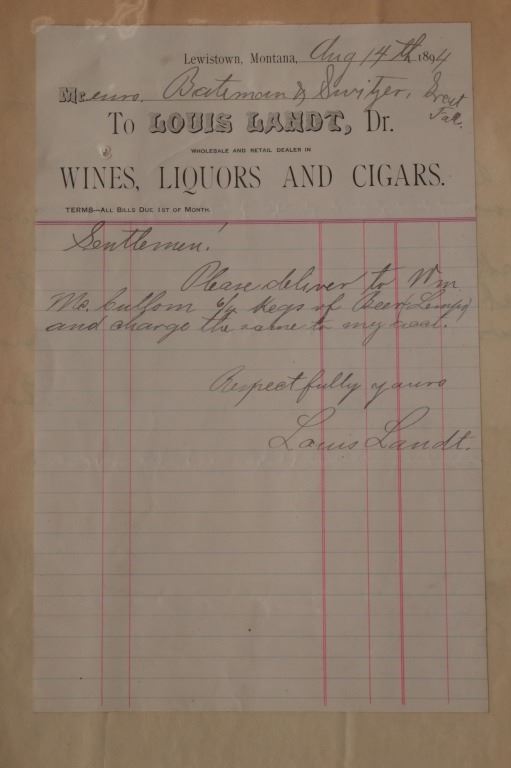 Lewistown, Montana, Aug 14th 1894
Messrs. Bateman & Switzer, Great Fall.
To LOUIS LANDT, Dr.
WHOLESALE AND RETAIL DEALER IN
WINES, LIQUORS AND CIGARS.
TERMS—ALL BILLS DUE 1ST OF MONTH.
Gentlemen!
Please deliver to Wm
Mc. Cullom 6/4 Kegs of Beer (Lemps)
and charge the same to my acct.
Respectfully yours
Louis Landt.